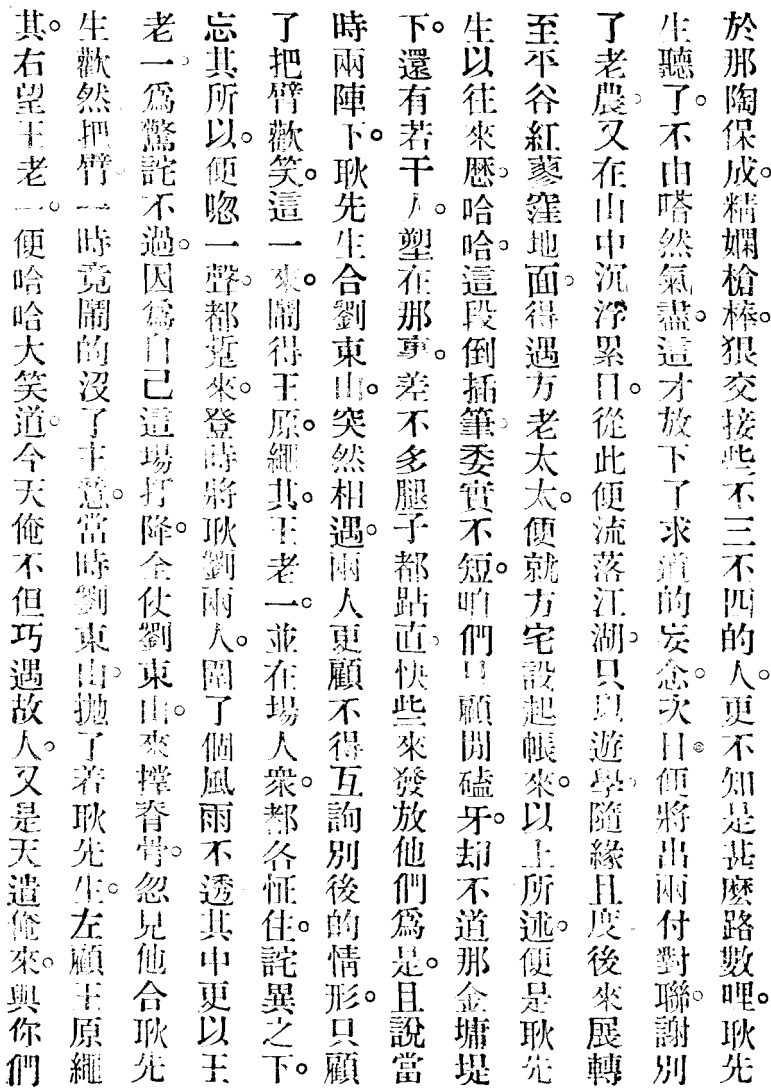 於那陶保成。精嫻槍棒。狠交接些不三不四的人。更不知是甚麼路數哩。耿先
生聽了。不由嗒然氣盡。這才放下了求道的妄念。次日。便將出兩付對聯。謝別
了老農。又在山中沉浮累日。從此便流落江湖。只以遊學。隨緣且度。後來展轉
至平谷紅蓼窪地面。得遇方老太太。便就方宅設起帳來。以上所述。便是耿先
生以往來歷。哈哈。這段倒插筆。委實不短。咱們只顧閒磕牙。却不道那金墉堤
下。還有若干人。塑在那裏。差不多腿子都跕直。快些來發放他們爲是。且說當
時兩陣下。耿先生合劉東山。突然相遇。兩人更顧不得互詢別後的情形。只顧
了把臂歡笑。這一來。鬧得王原繩。其王老一。並在場人衆。都各怔住。詫異之下。
忘其所以。便唿一聲。都踅來。登時將耿劉兩人。圍了個風雨不透。其中更以王
老一。爲驚詫不過。因爲自己這場打降。全仗劉東山。來撐脊骨。忽見他合耿先
生歡然把臂。一時竟鬧的沒了主意。當時劉東山。拋了若耿先生。左顧王原繩
其。右望王老一。便哈哈大笑道。今天俺不但巧遇故人。又是天遣俺來。與你們